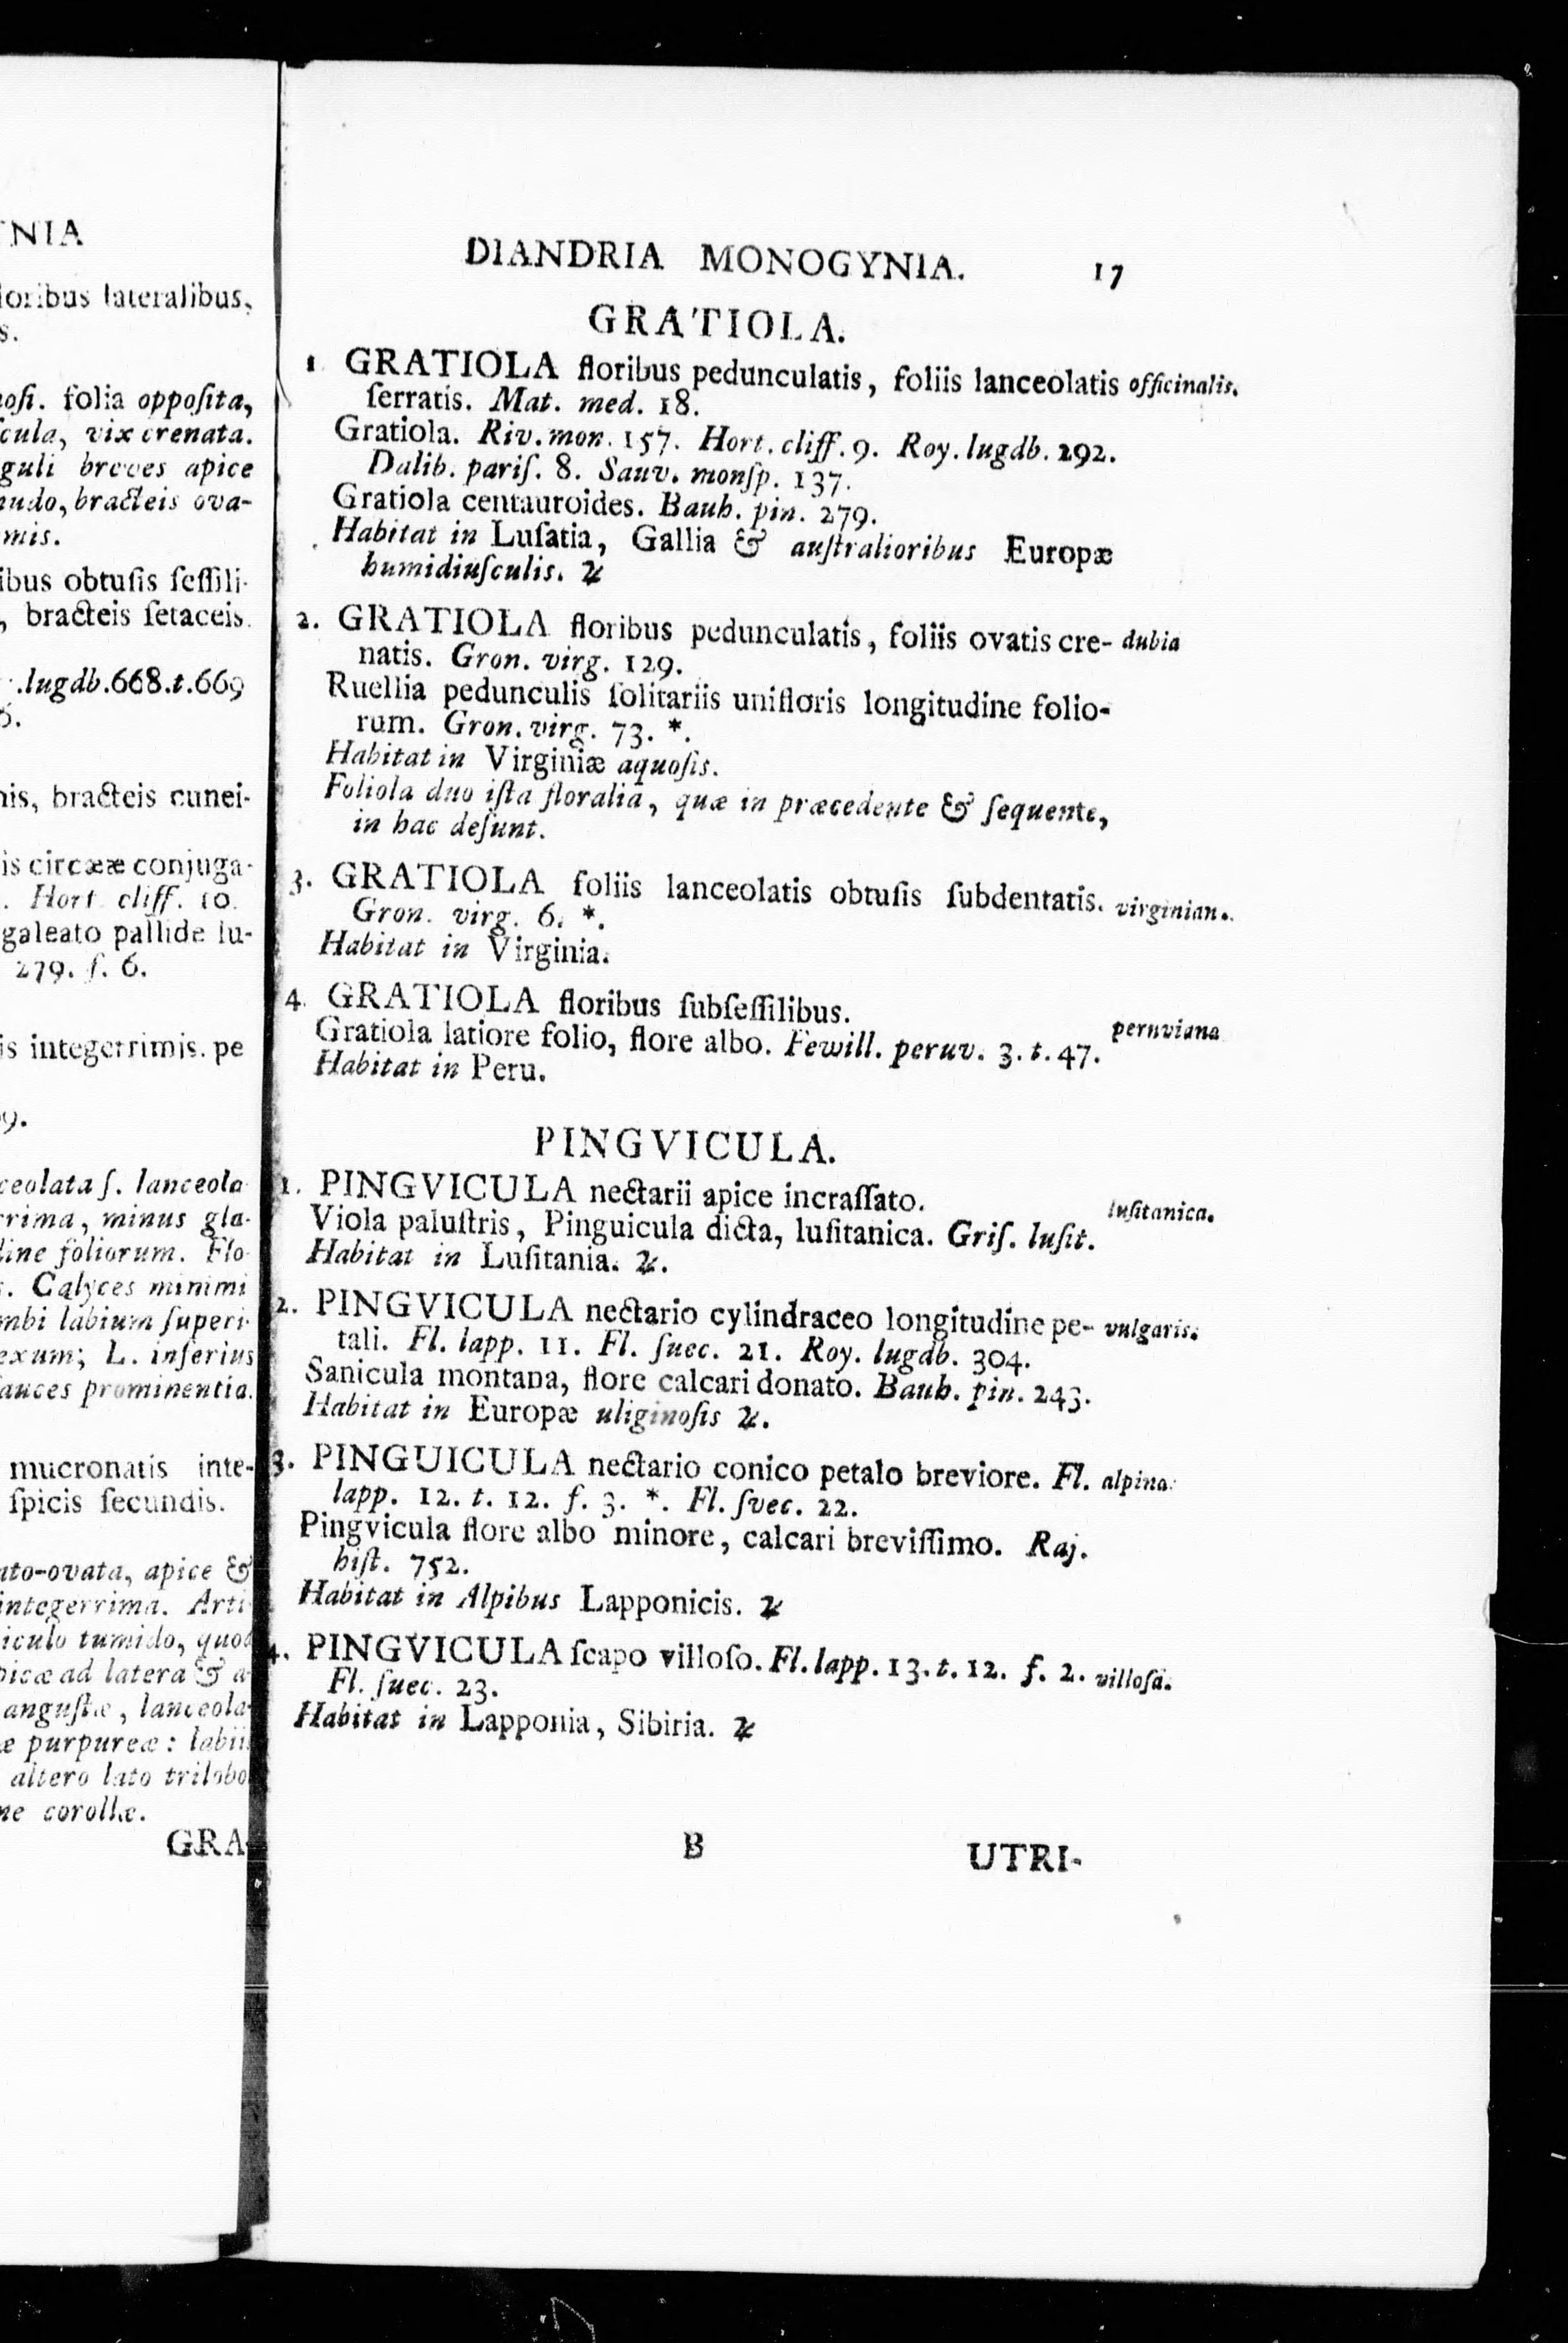 NIA
loribus lateralibus,
s.
oſi. folia oppoſita,
cula, vix crenata.
guli breves apice
nudo, bracteis ova-
mis.
ibus obtuſis ſeſſili-
, bracteis ſetaceis.
.lugdb.668.t.669
nis, bracteis cunei-
is circææ conjuga-
. Hort cliff. 10.
galeato pallide lu-
279. ſ. 6.
is integerrimis. pe
9.
ceolata ſ. lanceola
rrima, minus gla-
line foliorum. Flo-
s. Calyces minimi
mbi labium ſuperi-
exum; L. inferius
auces prominentia.
mucronatis inte-
ſpicis ſecundis.
ato-ovata, apice &
integerrima. Arti-
iculo tumido, quod
picæ ad latera & a-
anguſtæ, lanceola-
æ purpureæ: labii
altero lato trilobo
ne corollæ.
GRA-
DIANDRIA MONOGYNIA. 17
GRATIOLA.
1. GRATIOLA floribus pedunculatis, foliis lanceolatis officinalis.
ſerratis. Mat. med. 18.
Gratiola. Riv. mon. 157. Hort. cliff. 9. Roy. lugdb. 292.
Dalib. pariſ. 8. Sauv. monſp. 137.
Gratiola centauroides. Bauh. pin. 279.
Habitat in Luſatia, Gallia & auſtralioribus Europæ
humidiuſculis. ♃
2. GRATIOLA floribus pedunculatis, foliis ovatis cre- dubia
natis. Gron. virg. 129.
Ruellia pedunculis ſolitariis unifloris longitudine folio-
rum. Gron. virg. 73. *.
Habitat in Virginiæ aquoſis.
Foliola duo iſta floralia, quæ in præcedente & ſequente,
in hac deſunt.
3. GRATIOLA foliis lanceolatis obtuſis ſubdentatis. virginian.
Gron. virg. 6. *.
Habitat in Virginia.
4. GRATIOLA floribus ſubſeſſilibus. peruviana
Gratiola latiore folio, flore albo. Fewill. peruv. 3. t. 47.
Habitat in Peru.
PINGVICULA.
1. PINGVICULA nectarii apice incraſſato. luſitanica.
Viola paluſtris, Pinguicula dicta, luſitanica. Griſ. luſit.
Habitat in Luſitania. ♃.
2. PINGVICULA nectario cylindraceo longitudine pe- vulgaris.
tali. Fl. lapp. 11. Fl. ſuec. 21. Roy. lugdb. 304.
Sanicula montana, flore calcari donato. Bauh. pin. 243.
Habitat in Europæ uliginoſis ♃.
3. PINGUICULA nectario conico petalo breviore. Fl. alpina.
lapp. 12. t. 12. f. 3. *. Fl. ſvec. 22.
Pingvicula flore albo minore, calcari breviſſimo. Raj.
hiſt. 752.
Habitat in Alpibus Lapponicis. ♃
4. PINGVICULA ſcapo villoſo. Fl. lapp. 13. t. 12. f. 2. villoſa.
Fl. ſuec. 23.
Habitat in Lapponia, Sibiria. ♃
B UTRI-